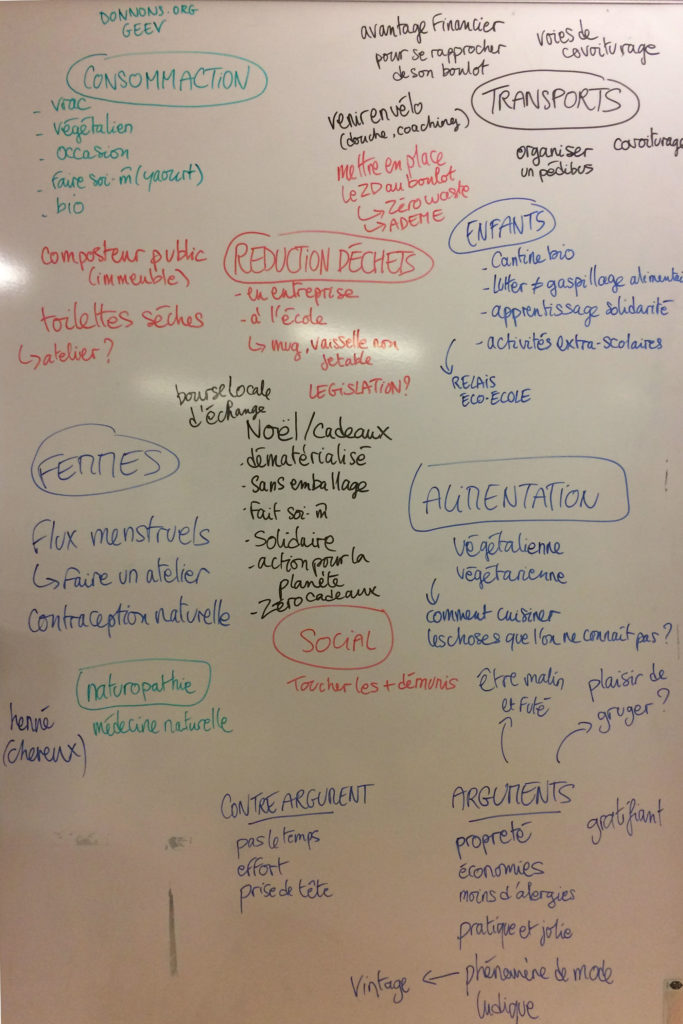 DONNONS.ORG
GEEV
CONSOMMACTION
- vrac
- végétalien
- occasion
- faire soi-m̂ (yaourt)
- bio
avantage financier
pour se rapprocher
de son boulot
voies de
covoiturage
TRANSPORTS
venir en vélo
(douche, coaching)
organiser
un pédibus
covoiturage
mettre en place
le ZD au boulot
↳ Zéro waste
↳ ADEME
composteur public
(immeuble)
toilettes sèches
↳ atelier ?
REDUCTION DÉCHETS
- en entreprise
- à l'école
↳ mug, vaisselle non
jetable
LEGISLATION?
ENFANTS
- Cantine bio
- lutter ≠ gaspillage alimentai
- apprentissage solidarité
- activités extra-scolaires
RELAIS
ECO-ECOLE
bourse locale
d'échange
Noël/cadeaux
· dématérialisé
· Sans emballage
· Fait soi-m̂
· Solidaire
- action pour la
planète
- Zéro cadeaux
FEMMES
Flux menstruels
↳ Faire un atelier
contraception naturelle
ALIMENTATION
végétalienne
végétarienne
comment cuisiner
les choses que l'on ne connaît pas ?
SOCIAL
Toucher les + démunis
naturopathie
médecine naturelle
henné
(cheveux)
être malin
et futé
plaisir de
gruger ?
CONTRE ARGUMENT
pas le temps
effort
prise de tête
ARGUMENTS
propreté
économies
moins d'alergies
pratique et jolie
phénomène de mode
ludique
gratifiant
Vintage